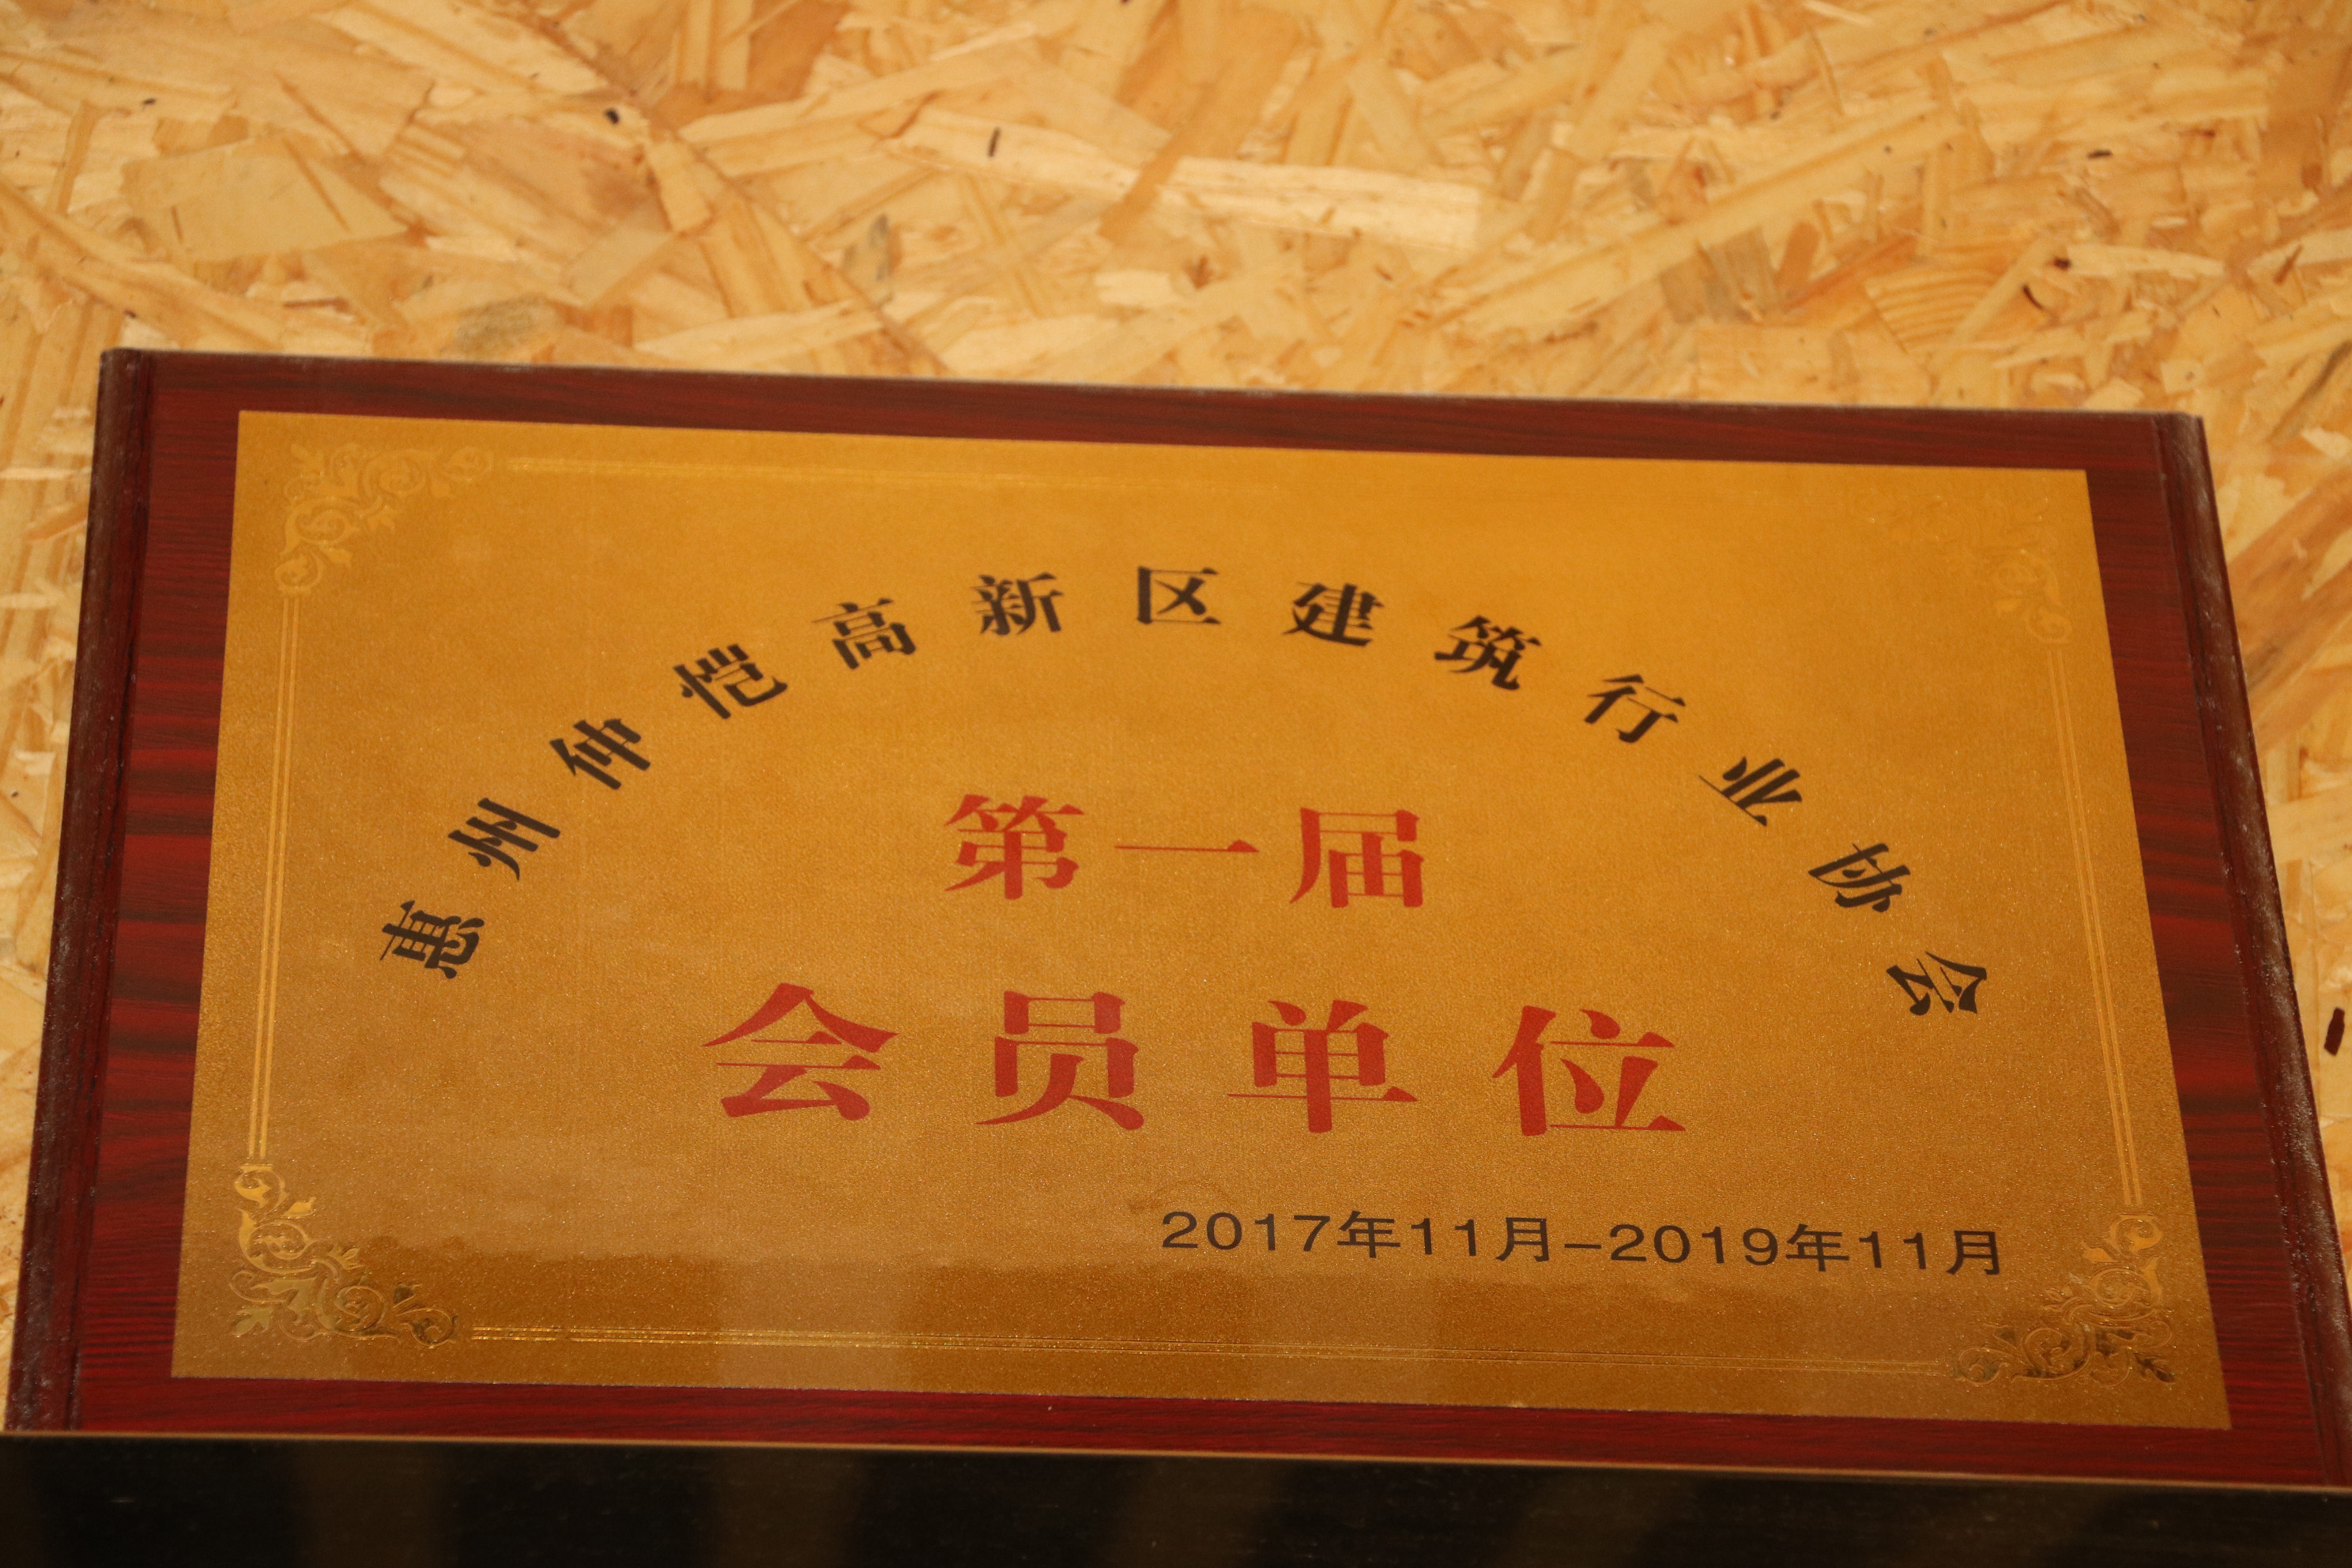 惠州仲恺高新区建筑行业协会
第一届
会员单位
2017年11月-2019年11月